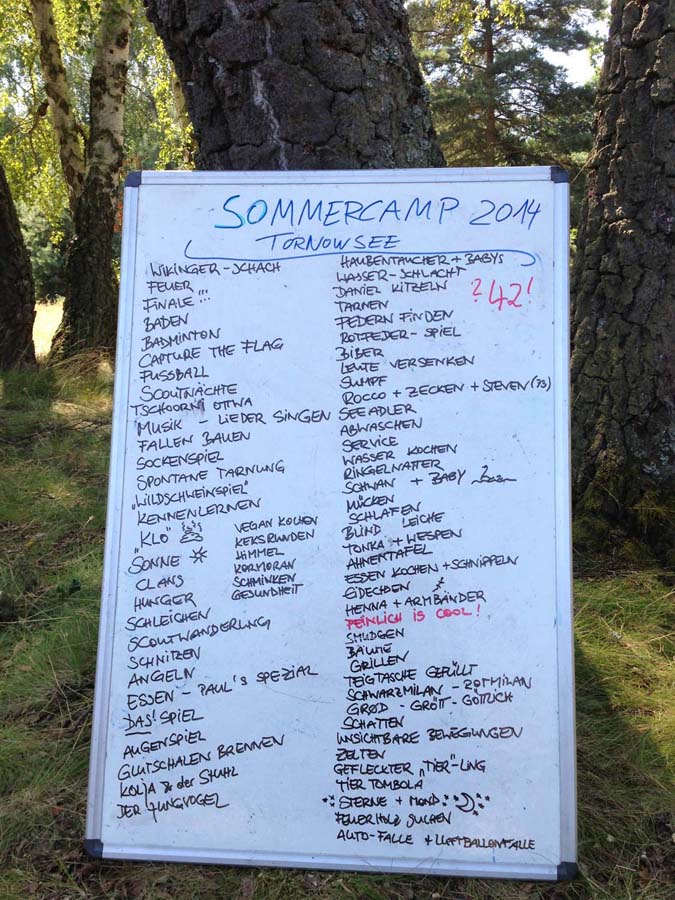 SOMMERCAMP 2014
TORNOWSEE
WIKINGER-SCHACH
FEUER
FINALE!!!
BADEN
BADMINTON
CAPTURE THE FLAG
FUSSBALL
SCOUTNÄCHTE
TSCHOORNI OTTWA
MUSIK - LIEDER SINGEN
FALLEN BAUEN
SOCKENSPIEL
SPONTANE TARNUNG
"WILDSCHWEINSPIEL"
KENNENLERNEN
"KLO"
SONNE
CLANS
HUNGER
SCHLEICHEN
SCOUTWANDERUNG
SCHNITZEN
ANGELN
ESSEN - PAUL'S SPEZIAL
DAS! SPIEL
AUGENSPIEL
GLUTSCHALEN BRENNEN
KOLJA & der STUHL
DER JUNGVOGEL
VEGAN KOCHEN
KEKSRUNDEN
HIMMEL
KORMORAN
SCHMINKEN
GESUNDHEIT
HAUBENTAUCHER + BABYS
WASSER-SCHLACHT
DANIEL KITZELN
?42!
TARNEN
FEDERN FINDEN
ROTFEDER-SPIEL
BIBER
LEUTE VERSENKEN
SUMPF
ROCCO + ZECKEN + STEVEN (73)
SEEADLER
ABWASCHEN
SERVICE
WASSER KOCHEN
RINGELNATTER
SCHWAN + BABY
MÜCKEN
SCHLAFEN
BLIND LEICHE
TONKA + WESPEN
AHNENTAFEL
ESSEN KOCHEN + SCHNIPPELN
EIDECHSEN
HENNA + ARMBÄNDER
PEINLICH IS COOL!
SMUDGEN
BÄUME
GRILLEN
TEIGTASCHE GEFÜLLT
SCHWARZMILAN - ROTMILAN
GRØD - GRÖTT - GÖTTLICH
SCHATTEN
UNSICHTBARE BEWEGUNGEN
ZELTEN
GEFLECKTER "TIER"-LING
TIER TOMBOLA
STERNE + MOND
FEUERHOLZ SUCHEN
AUTO-FALLE + LUFTBALLONFALLE